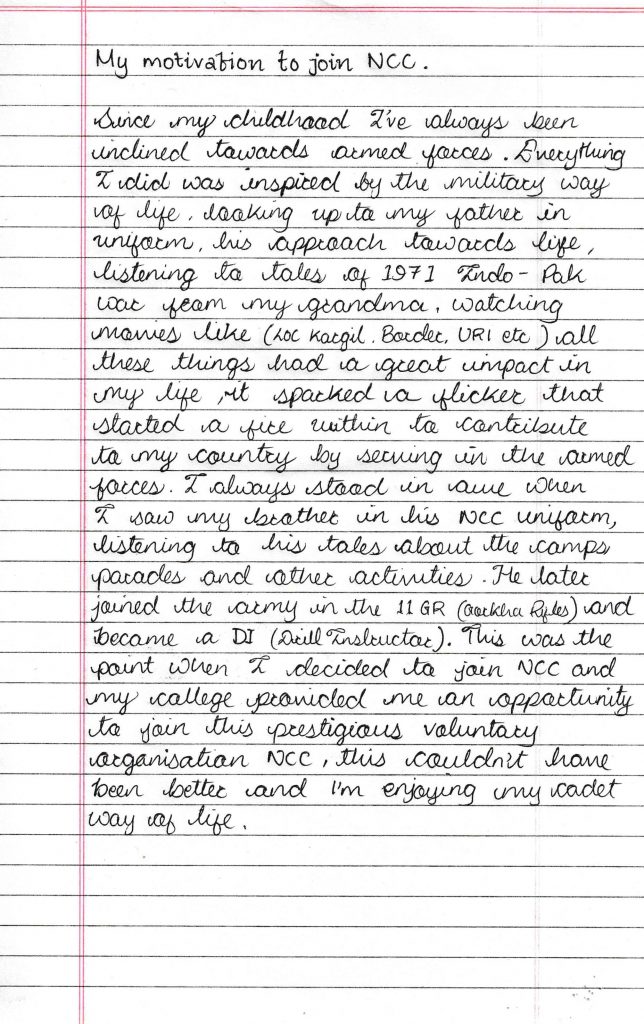 My motivation to join NCC.
Since my childhood I've always been
inclined towards armed forces. Everything
I did was inspired by the military way
of life, looking up to my father in
uniform, his approach towards life,
listening to tales of 1971 Indo-Pak
war from my grandma, watching
movies like (LOC Kargil, Border, URI etc) all
these things had a great impact in
my life, it sparked a flicker that
started a fire within to contribute
to my country by serving in the armed
forces. I always stood in awe when
I saw my brother in his NCC uniform,
listening to his tales about the camps
parades and other activities. He later
joined the army in the 11 GR (Gorkha Rifles) and
became a DI (Drill Instructor). This was the
point when I decided to join NCC and
my college provided me an opportunity
to join this prestigious voluntary
organisation NCC, this couldn't have
been better and I'm enjoying my cadet
way of life.